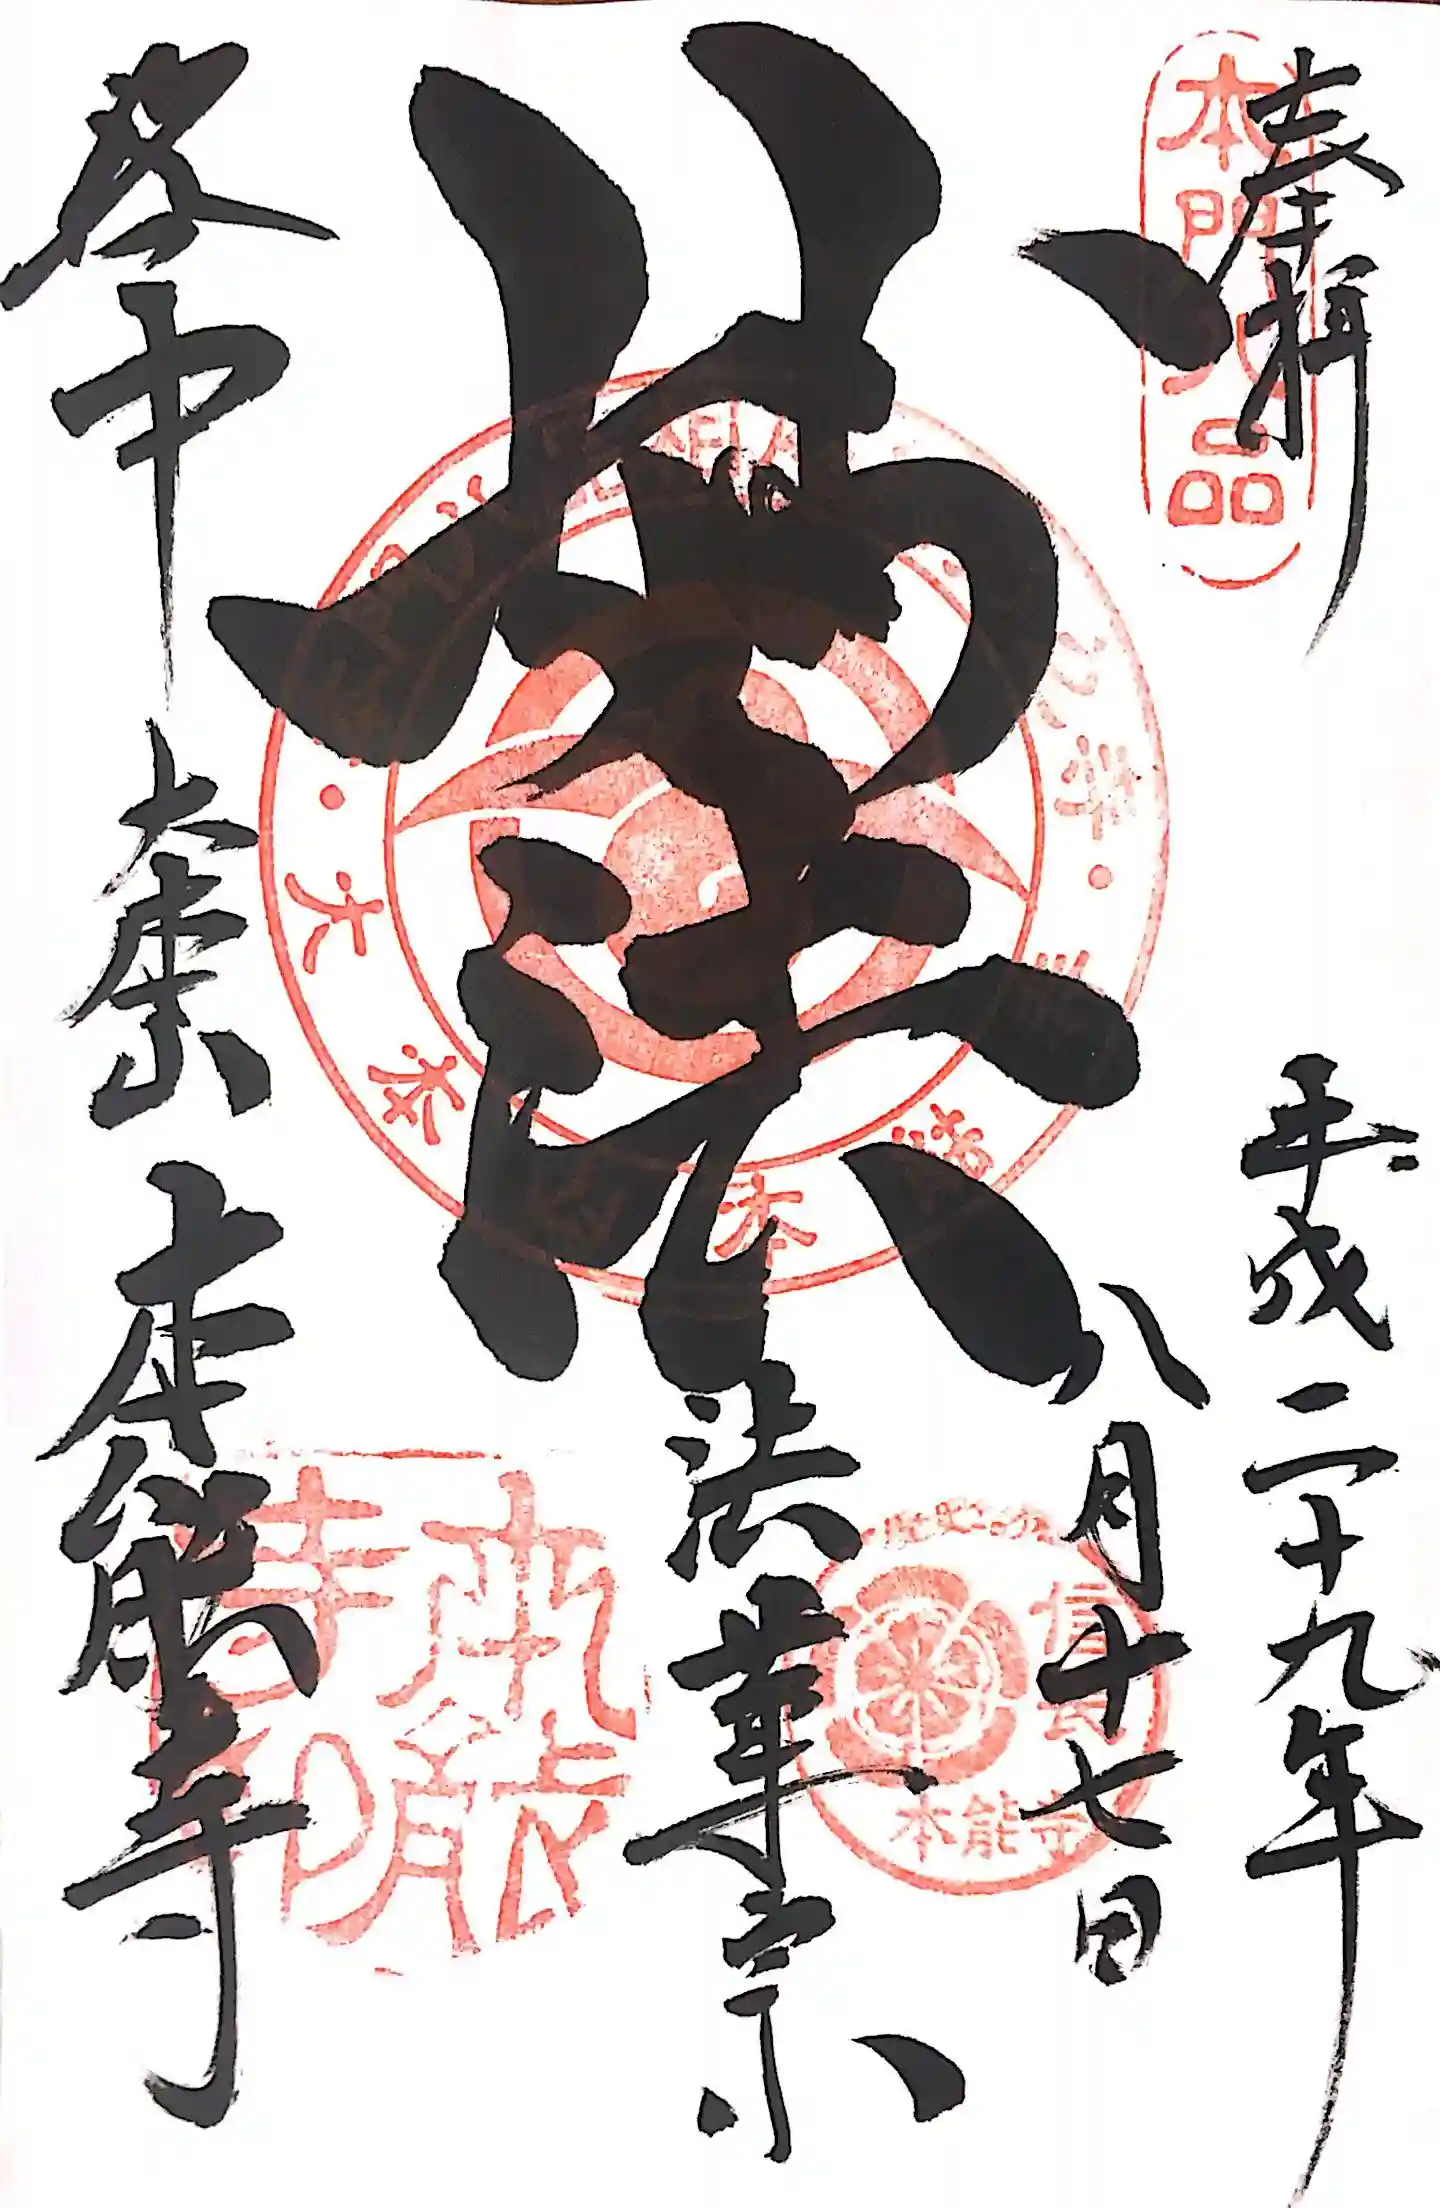 奉拝
本門八品
平成二十九年
八月十七日
妙法
法華宗
洛中
大本山
本能寺
本能寺
信長公
本能寺
大本山